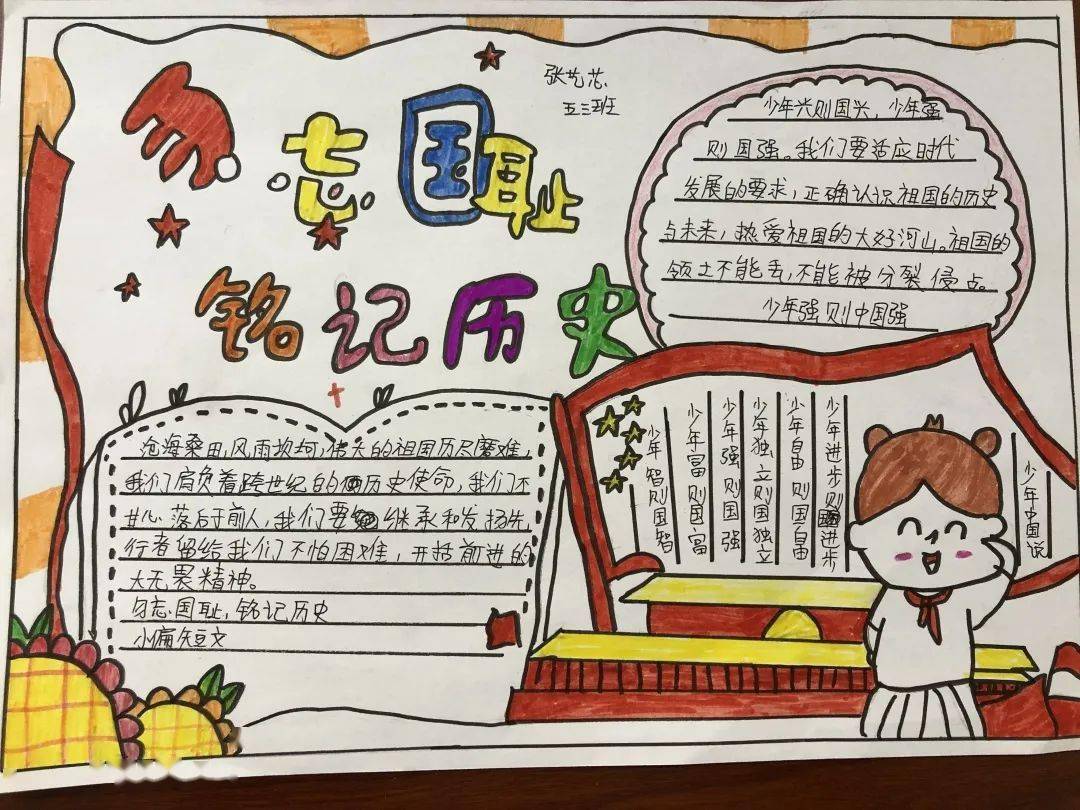 勿忘国耻
铭记历史
张艺芯
五三班
少年兴则国兴，少年强
则国强。我们要适应时代
发展的要求，正确认识祖国的历史
与未来，热爱祖国的大好河山。祖国的
领土不能丢，不能被分裂侵占。
少年强则中国强
少年中国说
少年进步则国进步
少年自由则国自由
少年独立则国独立
少年强则国强
少年富则国富
少年智则国智
沧海桑田，风雨坎坷，伟大的祖国历尽磨难，
我们肩负着跨世纪的历史使命，我们不
甘心落后于前人，我们要继承和发扬先
行者留给我们不怕困难，开拓前进的
大无畏精神。
勿忘国耻，铭记历史
小短文